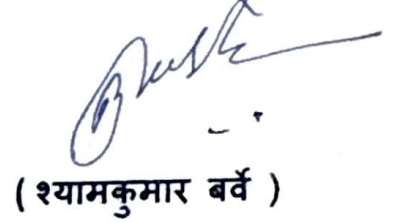 ( श्यामकुमार बर्वे )